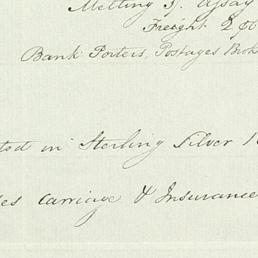 Melting J. Assay
Freight
Bank Porters, Postages Brok
ted in Sterling Silver
es Carriage & Insurance